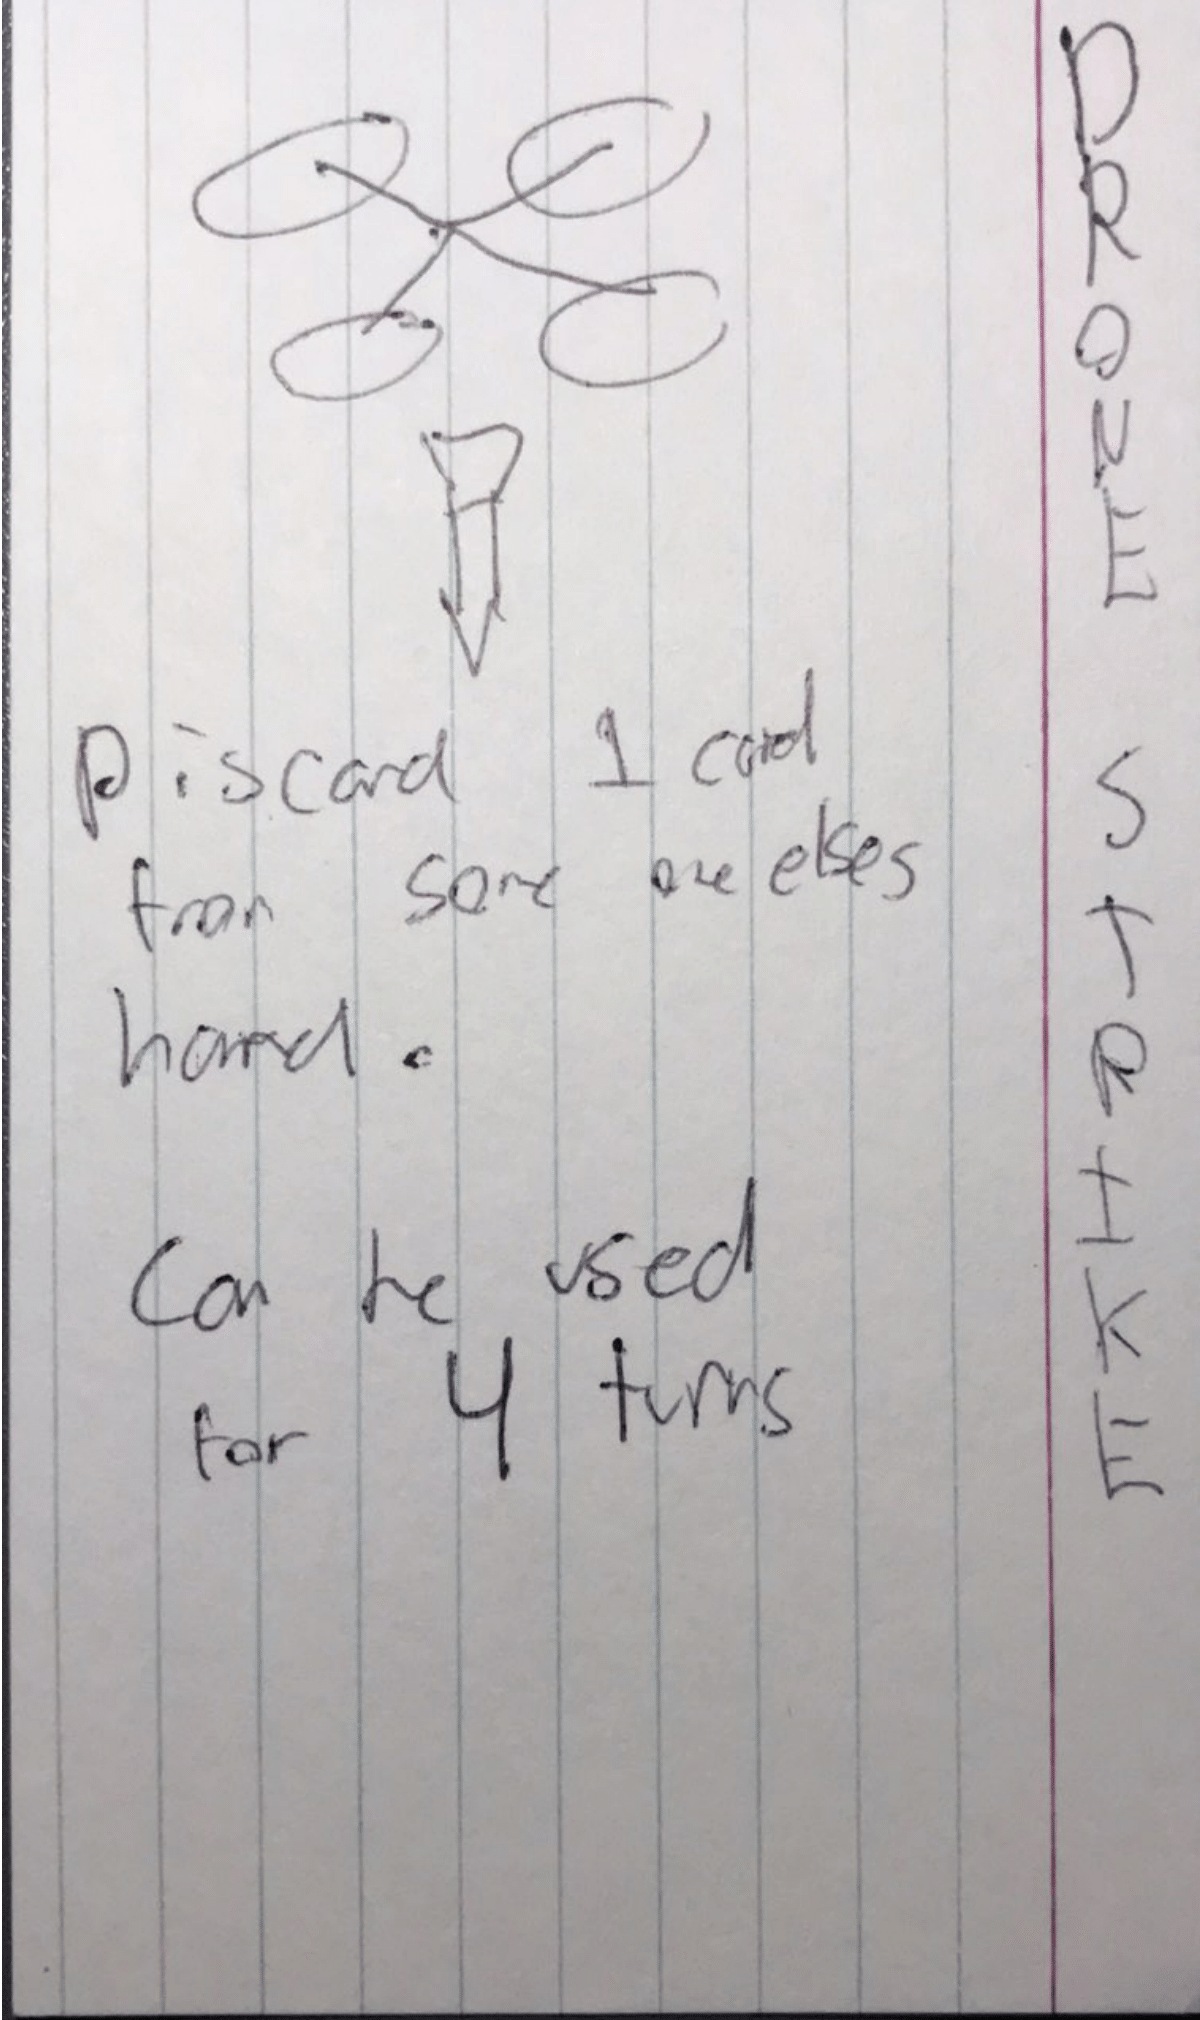 DRONE STRIKE
Discard 1 card
from some one elses
hand.
Can be used
for 4 turns